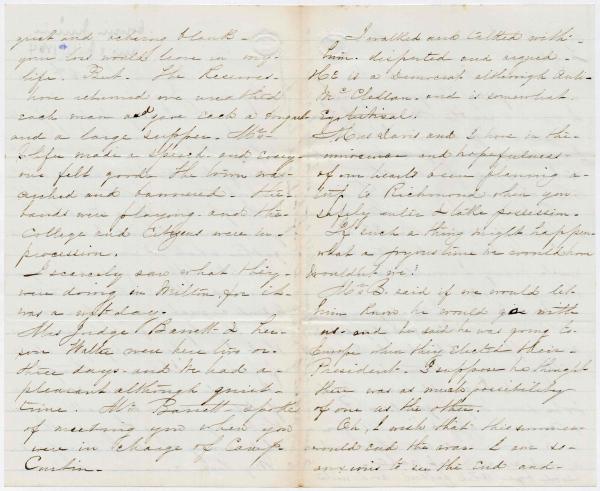 quiet and returns blank -
your loss would leave in my
life. But - The Reserves
have returned we wreathed
each man and gave each a bouquet
and a large supper. Mr.
Slifer made a speech and every
one felt good. The town was
arched and bannered - the
bands were playing and the
College and Citizens were in
procession.
I scarcely saw what they
were doing in Milton for it
was a wet day.
Mrs Judge Barrett & her
son Walter were here two or
three days - and we had a
pleasant although quiet
time. Mr Barrett spoke
of meeting you when you
were in charge of Camp
Curtin -
I walked and talked with
him. disputed and argued -
He is a Democrat although Anti-
McClellan - and is somewhat
Egotistical.
Miss Davis and I have in the
innocence and hopefulness
of our hearts been planning a
trip to Richmond when you
safely enter & take possession.
If such a thing might happen
what a joyous time we would have
wouldn't we?
Mr B. said if we would let
him know he would go with
us - and he said he was going to
Europe when they elected their
President - I suppose he thought
there was as much possibility
of one as the other.
Oh, I wish that this summer
would end the war. I am so
anxious to see the end and -